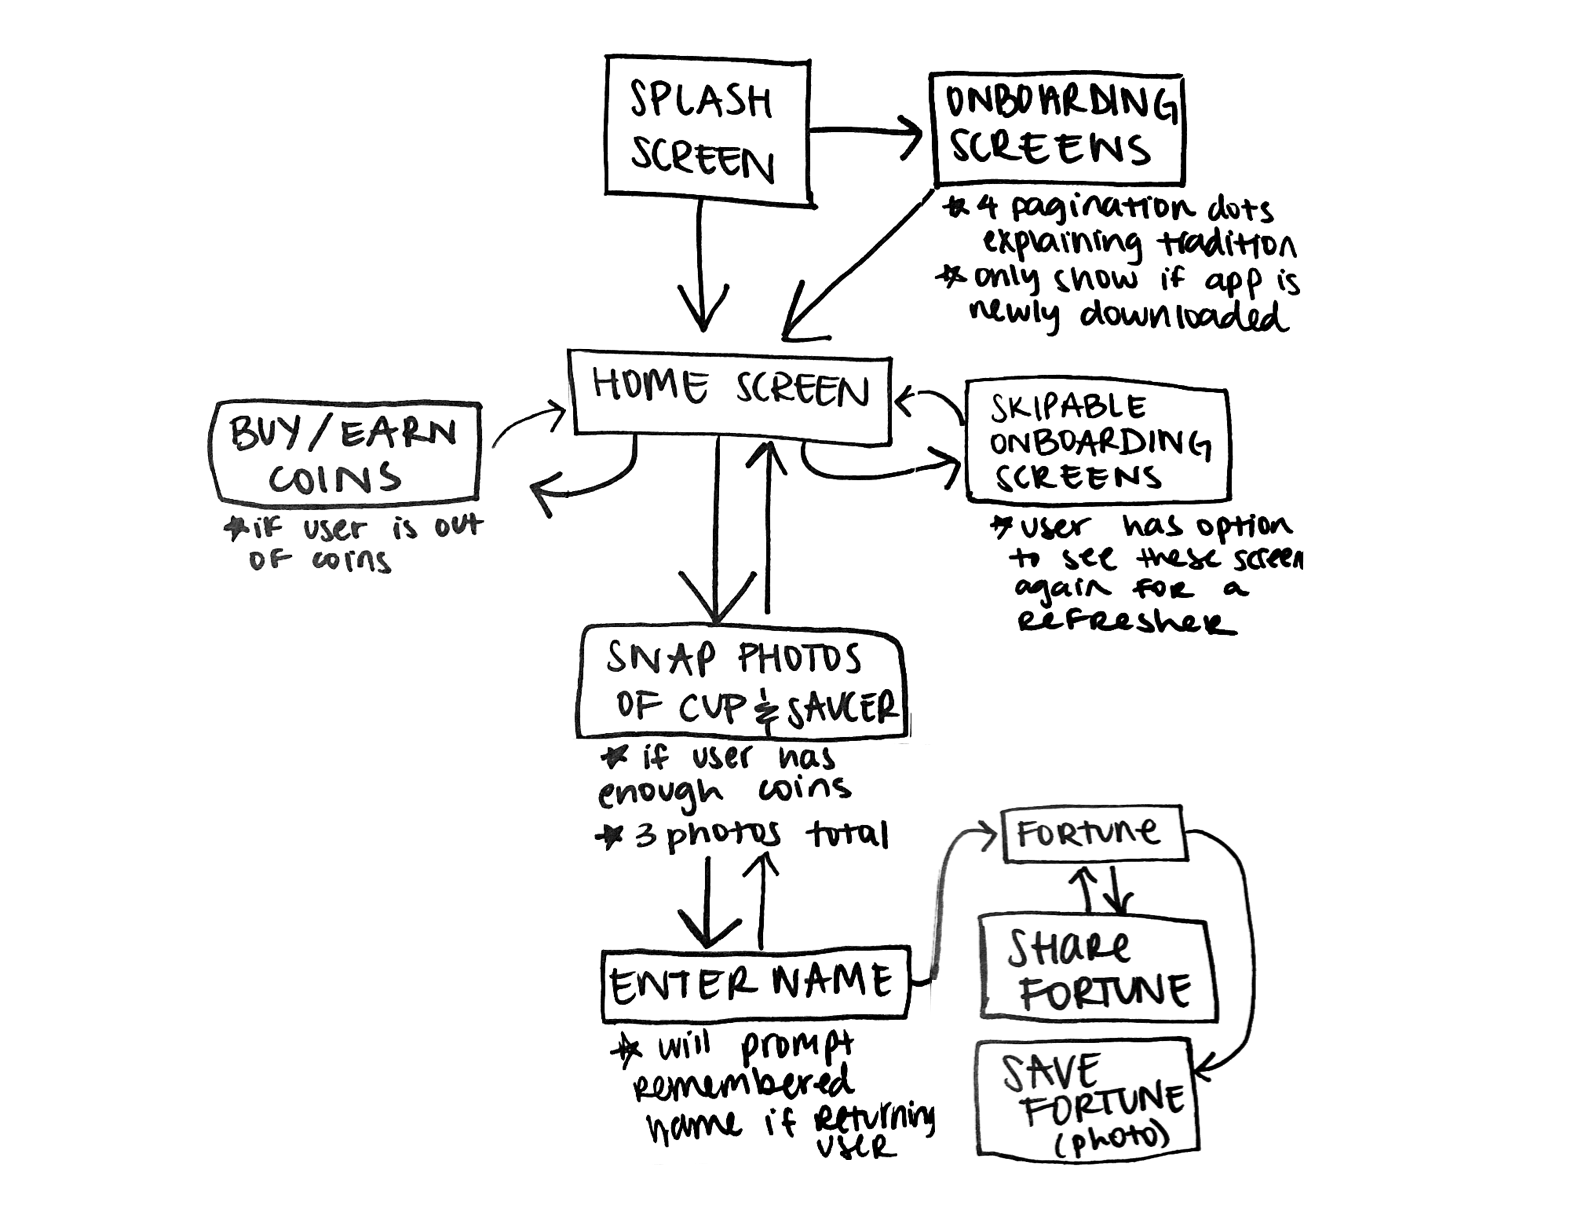 SPLASH
SCREEN
ONBOARDING
SCREENS
★ 4 pagination dots
explaining tradition
★ only show if app is
newly downloaded
HOME SCREEN
BUY/EARN
COINS
★ if user is out
OF coins
SKIPABLE
ONBOARDING
SCREENS
★ user has option
to see these screen
again FOR a
REFRESHER
SNAP PHOTOS
OF CUP & SAUCER
★ if user has
enough coins
★ 3 photos total
ENTER NAME
★ will prompt
remembered
name if returning
user
FORTUNE
SHARE
FORTUNE
SAVE
FORTUNE
(photo)